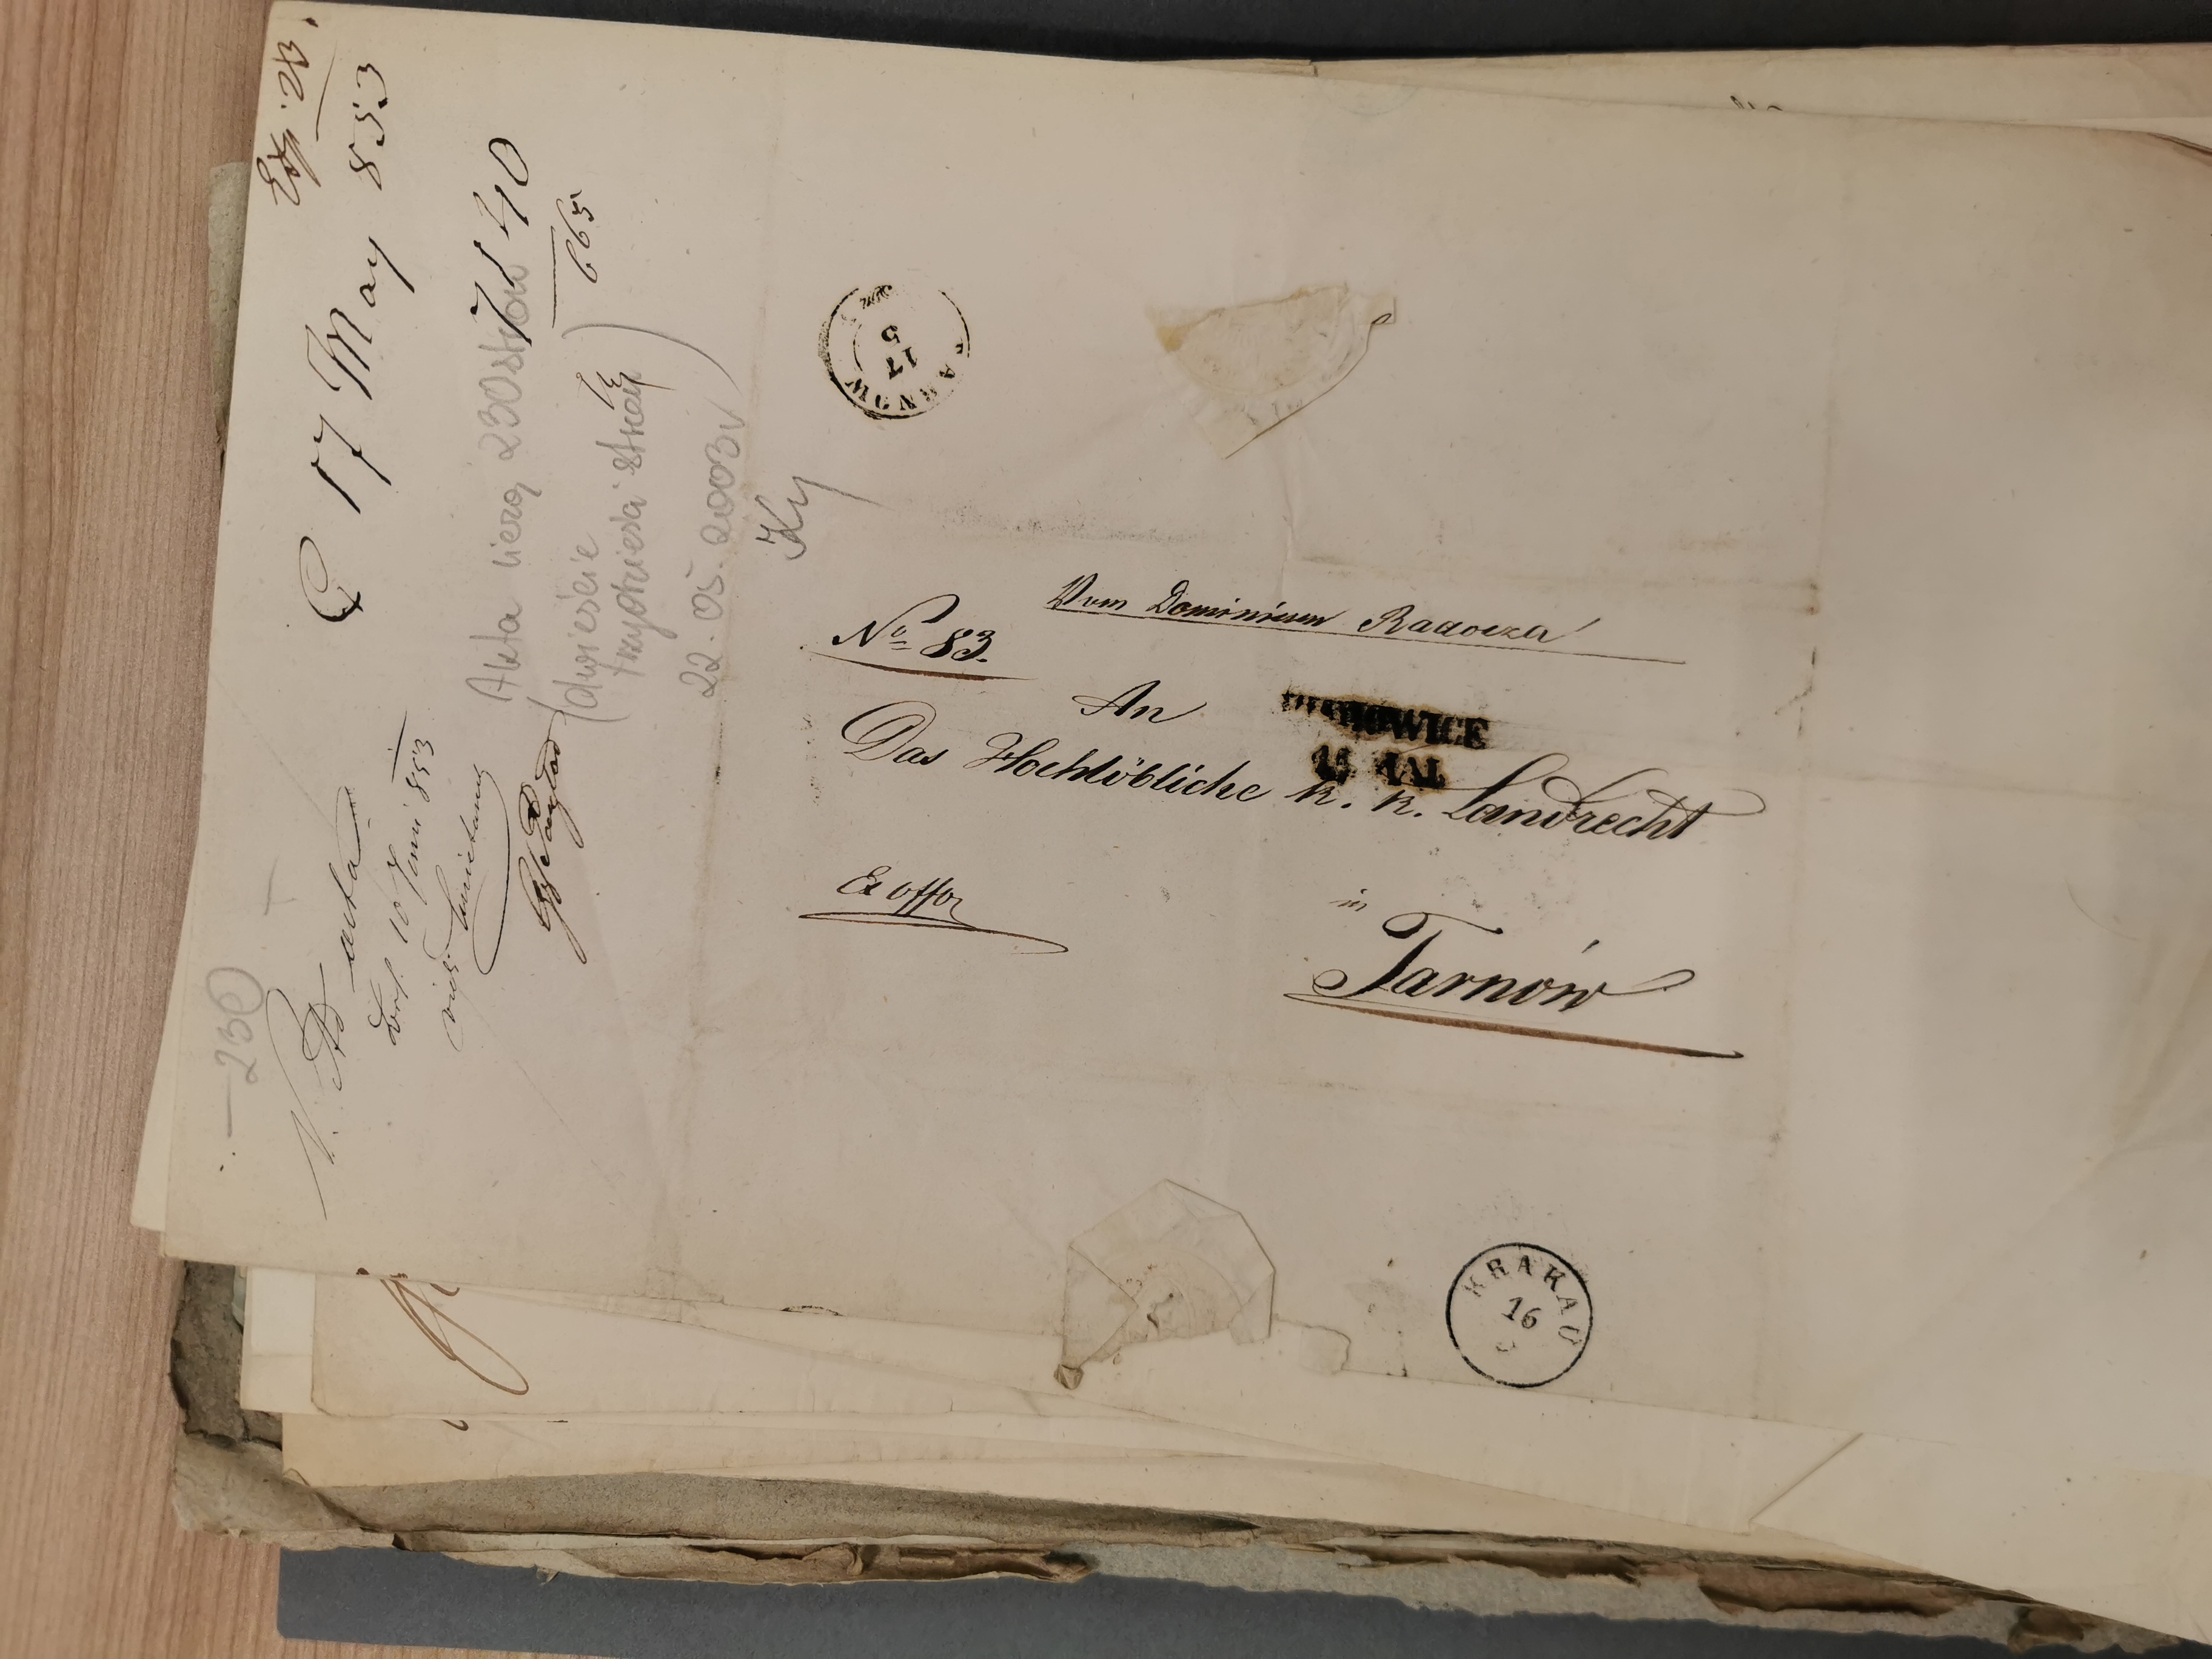 E 17 May 853
7140
665
Akta liczą 230 stron
(dwieście
trzydzieści stron)
22.05.2003r
230
N.
Ad acta
10 Juni 853
TARNOW
17
5
Vom Dominium
No 83.
An
WICE
MAI.
Das Hochlöbliche k. k. Landrecht
Ex offo
in
Tarnów
KRAKAU
16